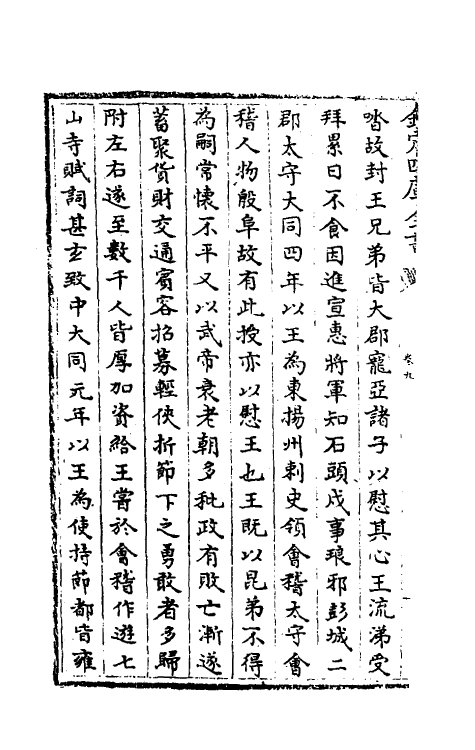 欽定四庫全書
卷九
嘖故封王兄弟皆大郡寵亞諸子以慰其心王流涕受
拜累日不食因進宣惠將軍知石頭戍事琅邪彭城二
郡太守大同四年以王為東揚州刺史領會稽太守會
稽人物殷阜故有此授亦以慰王也王既以昆弟不得
為嗣常懷不平又以武帝衰老朝多秕政有敗亡漸遂
蓄聚貨財交通賓客招募輕俠折節下之勇敢者多歸
附左右遂至數千人皆厚加資給王嘗於會稽作遊七
山寺賦詞甚玄致中大同元年以王為使持節都督雍